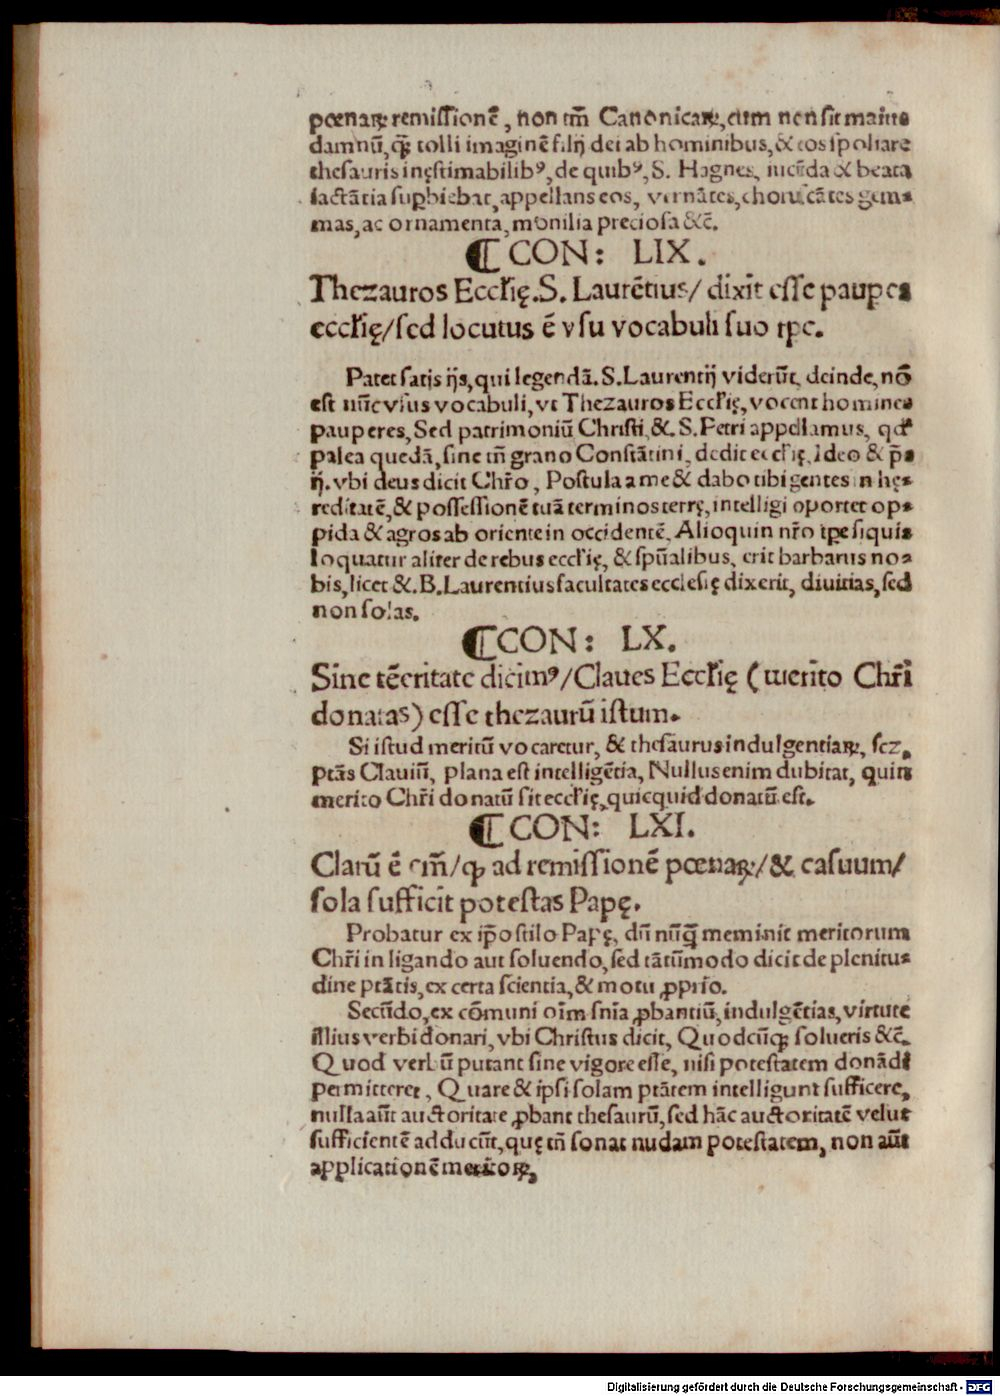 pœnaꝝ remissionē, non tm̄ Canonicaꝝ, cum non sit maius
damnū, ꝙ̄ tolli imaginē filij dei ab hominibus, & eos spoliare
thesauris inęstimabilibꝰ, de quibꝰ, S. Hagnes, iucūda & beata
iactātia supbiebat, appellans eos, vernātes, choruscātes gem⸗
mas, ac ornamenta, monilia preciosa &c̄.
⸿ CON: LIX.
Thezauros Eccl'ię. S. Laurētius/ dixit esse paupes
eccl'ię/ sed locutus ē vsu vocabuli suo tpe.
Patet satis ijs, qui legendā. S. Laurentij viderūt, deinde, nō
est nūc vsus vocabuli, vt Thezauros Eccl'ię, vocent homines
pauperes, Sed patrimoniū Christi, &. S. Petri appellamus, qd'
palea quedā, sine tn̄ grano Constātini, dedit eccl'ię, Ideo & p̄s
ij. vbi deus dicit Chr̄o, Postula a me & dabo tibi gentes in hę⸗
reditatē, & possessionē tuā terminos terrę, intelligi oportet op⸗
pida & agros ab oriente in occidentē, Alioquin nr̄o tpe siquis
loquatur aliter de rebus eccl'ię, & spūalibus, erit barbarus no⸗
bis, licet &. B. Laurentius facultates ecclesię dixerit, diuitias, sed
non solas.
⸿ CON: LX.
Sine tēeritate dicimꝰ/ Claues Eccl'ię (merito Chr̄i
donatas) esse thezaurū istum.
Si istud meritū vocaretur, & thesaurus indulgentiaꝝ, scz,
ptās Clauiū, plana est intelligētia, Nullus enim dubitat, quin
merito Chr̄i donatū sit eccl'ię, quicquid donatū est.
⸿ CON: LXI.
Clarū ē em̄/ ꝙ ad remissionē pœnaꝝ/ & casuum/
sola sufficit potestas Papę.
Probatur ex ip̄o stilo Papę, dū nūꝙ̄ meminit meritorum
Chr̄i in ligando aut soluendo, sed tātūmodo dicit de plenitu⸗
dine ptātis, ex certa scientia, & motu ꝓprio.
Secūdo, ex cōmuni oīm snīa ꝓbantiū, indulgētias, virtute
illius verbi donari, vbi Christus dicit, Quodcūꝙ solueris &c̄.
Quod verbū putant sine vigore esse, nisi potestatem donādi
permitteret, Quare & ipsi solam ptātem intelligunt sufficere,
nulla aūt auctoritate ꝓbant thesaurū, sed hāc auctoritatē velut
sufficientē adducūt, quę tn̄ sonat nudam potestatem, non aūt
applicationē meritoꝝ,
Digitalisierung gefördert durch die Deutsche Forschungsgemeinschaft - DFG